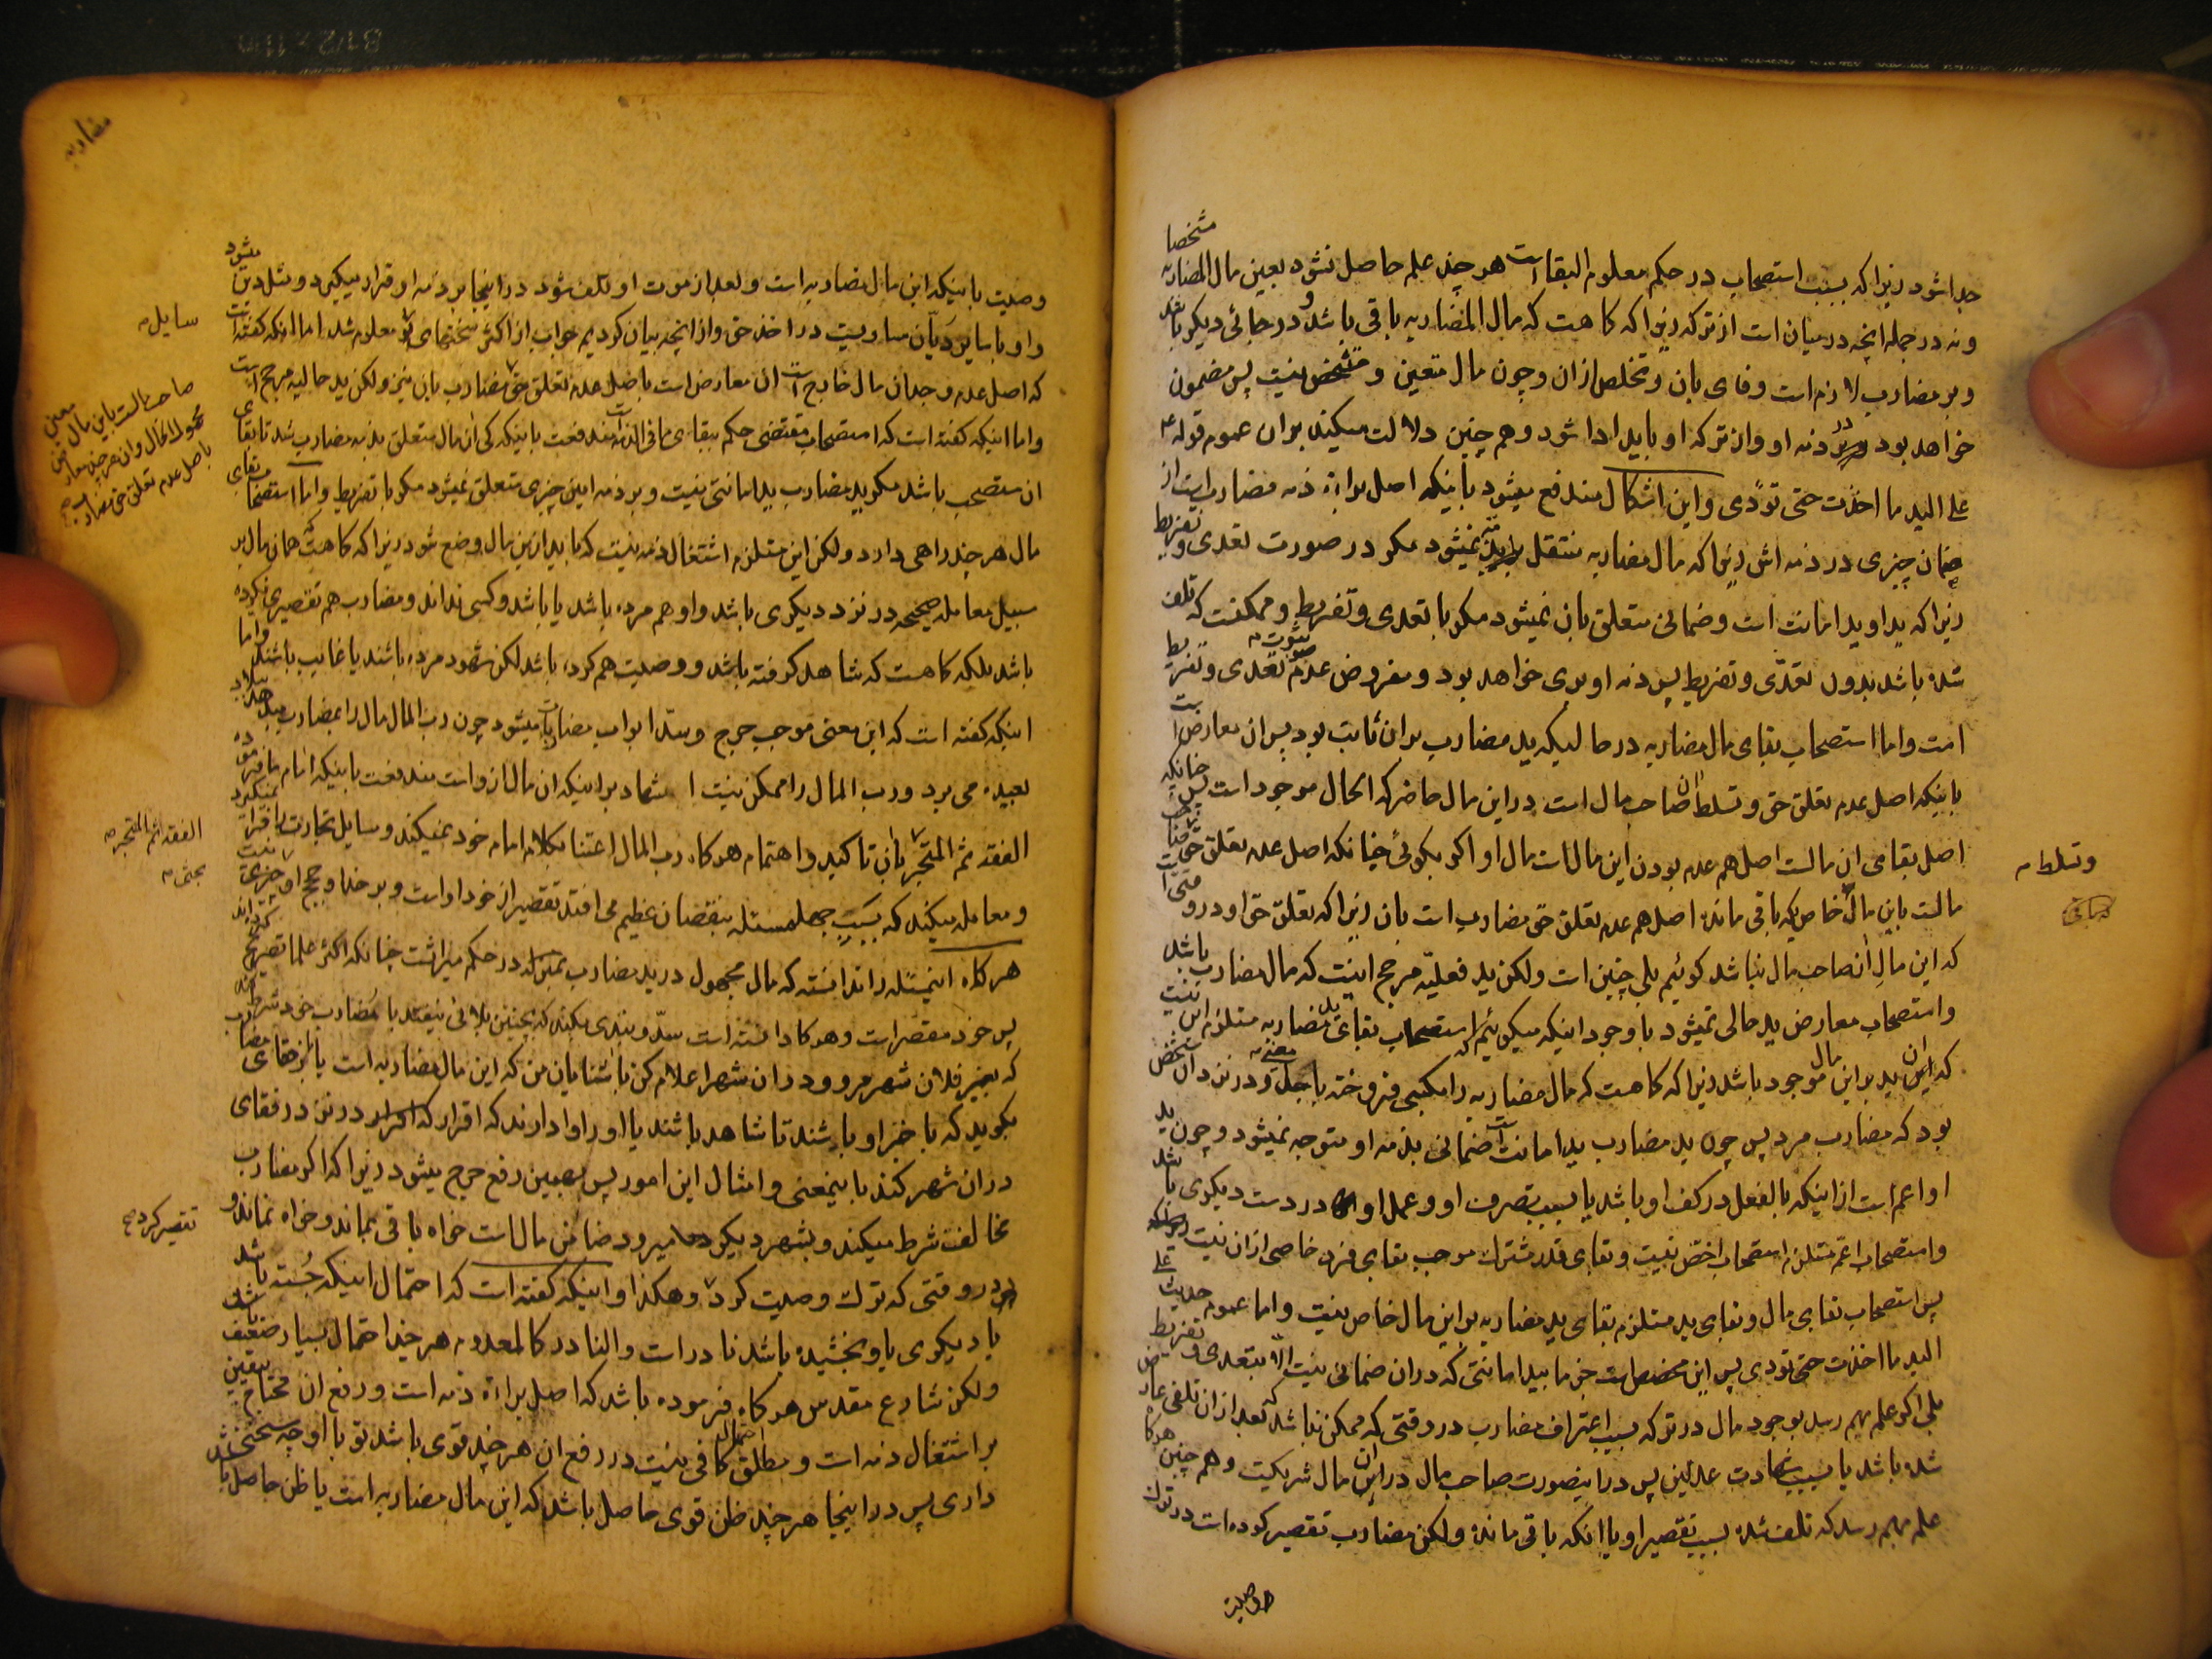 جدا شود زیرا که بسبب استصحاب در حکم معلوم البقا است هر چند علم حاصل نشود بعین مال المضاربه مشخصا
و نه در جمله آنچه در میان است از ترکه زیرا که کاهست که مال المضاربه باقی باشد و در جائی دیگر باشد
و بر مضارب لازم است وفای بان و تخلص از ان و چون مال متعین و مشخص نیست پس مضمون
خواهد بود در ذمه او و از ترکه او باید ادا شود و هم چنین دلالت میکند بران عموم قوله ع
علی الید ما اخذت حتی تؤدی و این اشکال مندفع میشود باینکه اصل براءة ذمه مضارب است از
ضمان چیزی در ذمه اش زیرا که مال مضاربه منتقل نمیشود مکر در صورت تعدی و تفریط
زیرا که ید او ید امانت است و ضمانی متعلق بان نمیشود مکر با تعدی و تفریط و ممکنست که تلف
شده باشد بدون تعدی و تفریط پس ذمه او بری خواهد بود و مفروض عدم ثبوت تعدی و تفریط
است و اما استصحاب بقای مال مضاربه در حالیکه ید مضارب بران ثابت بود پس ان معارض است
باینکه اصل عدم تعلق حق و تسلط ان صاحب مال است در این مال حاضر که الحال موجود است پس چنانکه
اصل بقای ان مالست اصل هم عدم بودن این مال است مال او اکر بکوئی چنانکه اصل عدم تعلق حق
مالست باین مال خاص که باقی مانده اصل هم عدم تعلق حق مضارب است بان زیرا که تعلق حق او در وقتی است
که این مال ان صاحب مال نباشد کوئیم بلی چنین است ولکن ید فعلیه مرجح اینست که مال مضارب باشد
و استصحاب معارض ید حالی نمیشود با وجود اینکه میکوئیم که استصحاب بقای ید مضاربه مستلزم این نیست
که ان ید بر این مال موجود باشد زیرا که کاهست که مال مضاربه را بکسی فروخته باجل معینی و در نزد ان شخص
بود که مضارب مرد پس چون ید مضارب ید امانت است ضمانی بذمه او متوجه نمیشود و چون ید
او اعم است از اینکه بالفعل در کف او باشد یا بسبب تصرف او و عمل او در دست دیکری باشد
و استصحاب اعم مستلزم استصحاب اخص نیست و بقای قدر مشترک موجب بقای فرد خاصی از ان نیست
پس استصحاب بقای مال و بقای ید مستلزم بقای ید مضاربه بر این مال خاص نیست و اما عموم حدیث علی
الید ما اخذت حتی تودی پس این مخصص است جزما بید امانتی که در ان ضمانی نیست الا بتعدی و تفریط
بلی اکر علم بهم رسد بوجود مال در ترکه بسبب اعتراف مضارب در وقتی که ممکن نباشد که بعد از ان تلفی عارض
شده باشد یا بسبب شهادت عدلین پس در اینصورت صاحب مال در ان مال شریکست و هم چنین هر کاه
علم بهم رسد که تلف شده بسبب تقصیر او یا انکه باقی مانده ولکن مضارب تقصیر کرده است در ترک
وصیت
وتسلط
مضاربه
وصیت باینکه این مال مضاربه است و بعد از موت او تلف شود در اینجا بر ذمه او قرار میکیرد و مثل دین میشود
و او با سایر دیّان مساویست در اخذ حق و از آنچه بیان کردیم جواب از اکثر سخنهای تو معلوم شد اما انکه کفته است
که اصل عدم وجدان مال خارج است ان معارض است باصل عدم تعلق حق مضارب بان نیز ولکن ید حالیه مرجح است
و اما اینکه کفته است که استصحاب مقتضی حکم ببقای مافی الذمه است مندفعست باینکه کی ان مال متعلق بذمه مضارب شد تا بقای
ان مستصحب باشد مکر ید مضارب ید امانتی نیست و بر ذمه امین چیزی متعلق نمیشود مکر با تفریط و اما استصحاب بقای
مال هر چند راهی دارد ولکن این مستلزم اشتغال ذمه نیست که باید از این مال وضع شود زیرا که کاهست که همان مال بر
سبیل معامله صحیحه در نزد دیکری باشد و او هم مرده باشد یا باشد و کسی نداند و مضارب هم تقصیری نکرده
باشد بلکه کاهست که شاهد کرفته باشد و وصیت هم کرده باشد لکن شهود مرده باشند یا غایب باشند و اما
اینکه کفته است که این معنی موجب حرج و سدّ ابواب مضاربات میشود چون رب المال مال را بمضارب میدهد ببلاد
بعیده می برد و رب المال را ممکن نیست اشهاد بر اینکه ان مال از و است مندفعست باینکه امام ما فرموده
الفقه ثم المتجر بان تاکید و اهتمام هر کاه رب المال اعتنا بکلام امام خود نمیکند و مسایل تجارت را فرا نمیکیرد
و معامله میکند که بسبب جهل مسئله بنقصان عظیم می افتد تقصیر از خود او است و بر خدا و حجج او چیزی نیست
هر کاه اینمسئله را ندانسته که مال مجهول در ید مضارب بمنزله در حکم میراثست چنانکه اکثر علما تصریح کرده اند
پس خود مقصر است و هر کاه دانسته است سدّ و بندی میکند که بچنین بلائی نیفتد با مضارب خود شرط
که بغیر فلان شهر مرو و در ان شهر اعلام کن باشنایان من که این مال مضاربه است یا برفقای مضارب
بکوید که با خبر او باشند تا شاهد باشند یا او را وا دارند که اقرار در نزد رفقای
در ان شهر کند باینمعنی و امثال این امور پس بهمین رفع حرج میشود زیرا که اکر مضارب
مخالفت شرط میکند و بشهر دیکر میرود ضامن مال است خواه باقی بماند و خواه نماند و
در وقتی که ترک وصیت کرد و هکذا و اینکه کفته است که احتمال اینکه جُسته باشد
یا دیکری باو بخشیده باشد نادر است و النادر کالمعدوم هر چند احتمال بسیار ضعیف باشد
ولکن شارع مقدس هر کاه فرموده باشد که اصل براءة ذمه است و رفع ان محتاج بیقین
بر اشتغال ذمه است و مطلق احتمال کافی نیست در رفع ان هر چند قوی باشد تو با او چه سخنی
داری پس در اینجا هر چند ظن قوی حاصل باشد که این مال مضاربه است یا ظن حاصل باشد
سایل
صاحب مالست باین مال معین
مجهول الحال و ان هر چند معارض
باصل عدم تعلق حق مضارب
الفقه ثم المتجر
بحثی
تقصیر کرده